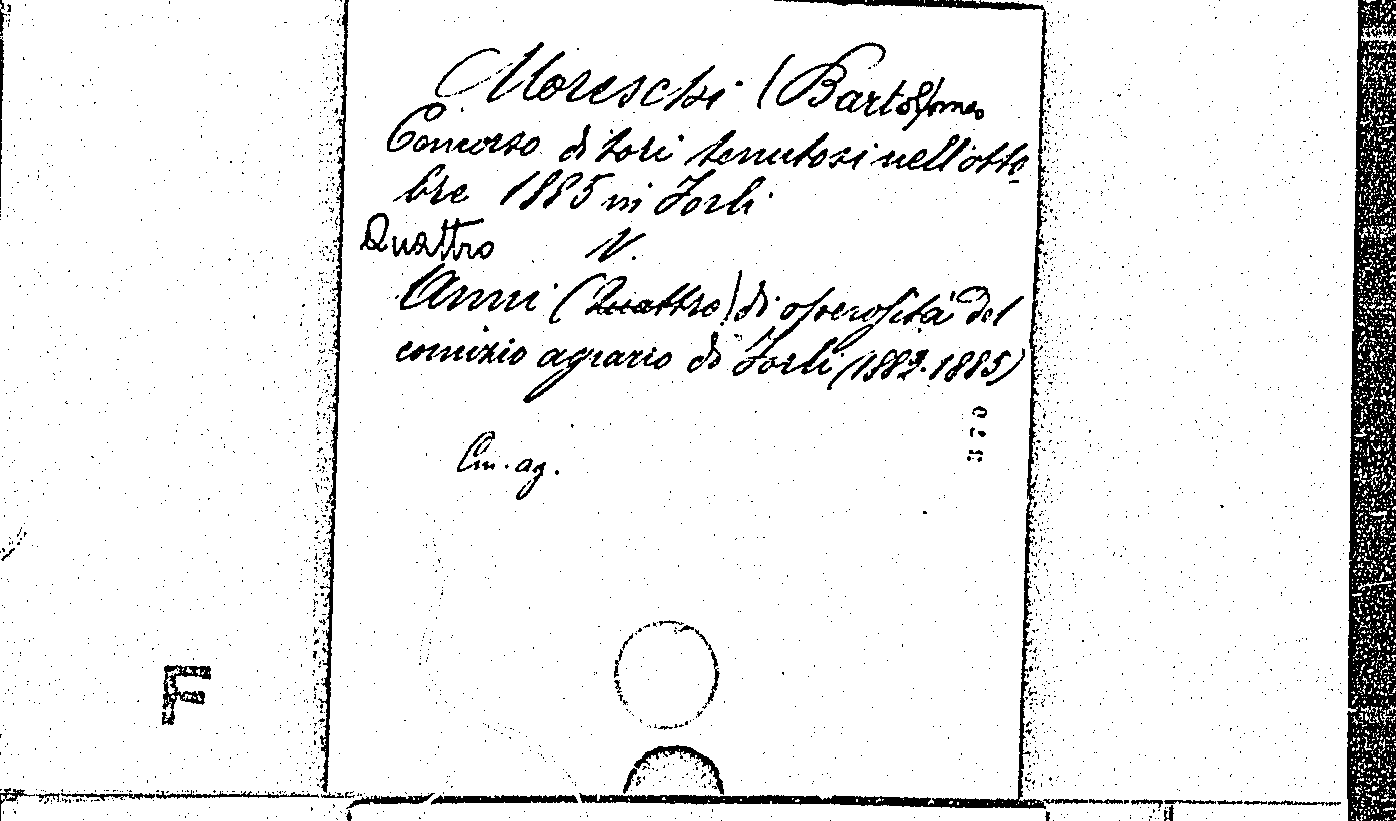 Moreschi (Bartolomeo)
Concorso di tori tenutosi nell'otto-
bre 1885 in Forlì
Quattro V.
Anni (Quattro) di operosità del
comizio agrario di Forlì (1882-1885)
370
Cm. ag.
F